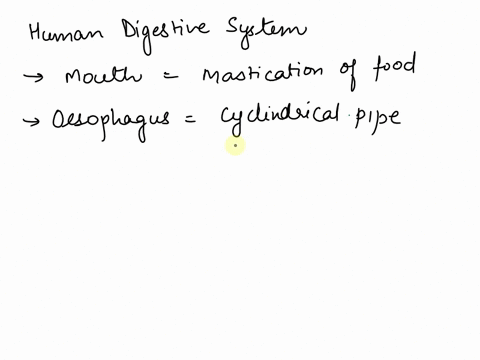 Human Digestive System
→ Mouth = Mastication of food
→ Oesophagus = Cyclindrical pipe